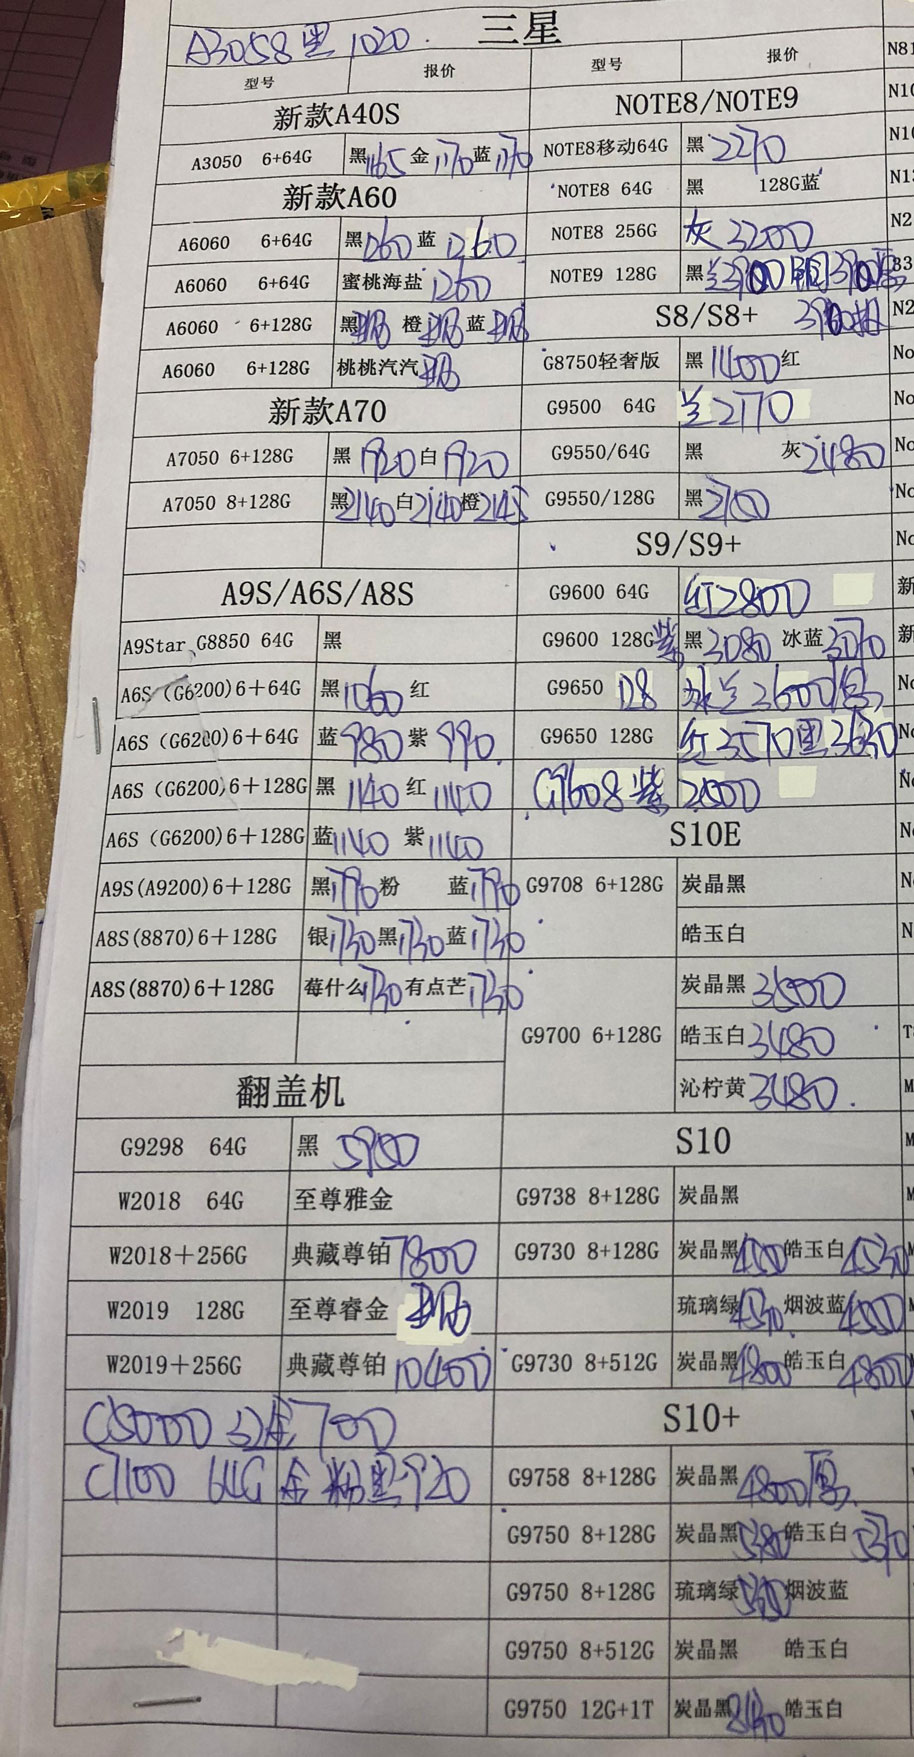 三星
A3058黑1020.
型号 报价
新款A40S
A3050 6+64G 黑1165 金1170 蓝1170
新款A60
A6060 6+64G 黑1260 蓝1260
A6060 6+64G 蜜桃海盐1260
A6060 6+128G 黑 橙 蓝
A6060 6+128G 桃桃汽汽
新款A70
A7050 6+128G 黑1920白1920
A7050 8+128G 黑2140白2140橙2145
A9S/A6S/A8S
A9Star G8850 64G 黑
A6S (G6200)6+64G 黑1060 红
A6S (G6200)6+64G 蓝980 紫990.
A6S (G6200)6+128G 黑1140 红1140
A6S (G6200)6+128G 蓝1140 紫1140
A9S(A9200)6+128G 黑1790粉 蓝1790
A8S(8870)6+128G 银1730黑1730蓝1730
A8S(8870)6+128G 莓什么1730有点芒1730
翻盖机
G9298 64G 黑 5950
W2018 64G 至尊雅金
W2018+256G 典藏尊铂7800
W2019 128G 至尊睿金
W2019+256G 典藏尊铂10400
C5000 金700
C7100 64G 金粉黑920
型号 报价
NOTE8/NOTE9
NOTE8移动64G 黑2270
NOTE8 64G 黑 128G蓝
NOTE8 256G 灰3200
NOTE9 128G 黑
S8/S8+
G8750轻奢版 黑1400红
G9500 64G 兰2170
G9550/64G 黑 灰2480
G9550/128G 黑2700
S9/S9+
G9600 64G 红2800
G9600 128G 紫黑3080 冰蓝3070
G9650 128 冰兰3600
G9650 128G 红3570黑3630
G9608紫2500
S10E
G9708 6+128G 炭晶黑
皓玉白
G9700 6+128G 炭晶黑3500
皓玉白3480
沁柠黄3480.
S10
G9738 8+128G 炭晶黑
G9730 8+128G 炭晶黑4500皓玉白4530
琉璃绿4510 烟波蓝4500
G9730 8+512G 炭晶黑4800皓玉白4800
S10+
G9758 8+128G 炭晶黑4800
G9750 8+128G 炭晶黑5380皓玉白5370
G9750 8+128G 琉璃绿 烟波蓝
G9750 8+512G 炭晶黑 皓玉白
G9750 12G+1T 炭晶黑 皓玉白